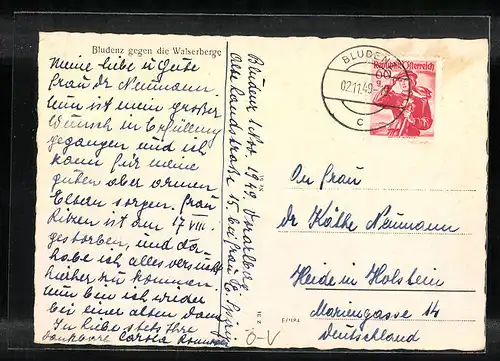 Bludenz gegen die Walserberge
Meine liebe u gute
Frau Dr Neumann.
Nun ist mein großer
Wunsch in Erfüllung
gegangen und ich
kann für meine
guten aber armen
Eltern sorgen. Frau
ist am 17 VIII.
gestorben, und da
habe ich alles versucht
hierher zu kommen.
Nun bin ich wieder
bei einer alten Dame
In Liebe stets Ihre
dankbare Carola
Bludenz 1 Nov. 1949. Vorarlberg
Alte Landstraße 15. bei Frau
BLUDENZ
02.11.49
c
Republik Österreich
60
g
An Frau
dr Käthe Neumann
Heide in Holstein
Mariengasse 14
Deutschland
O-V